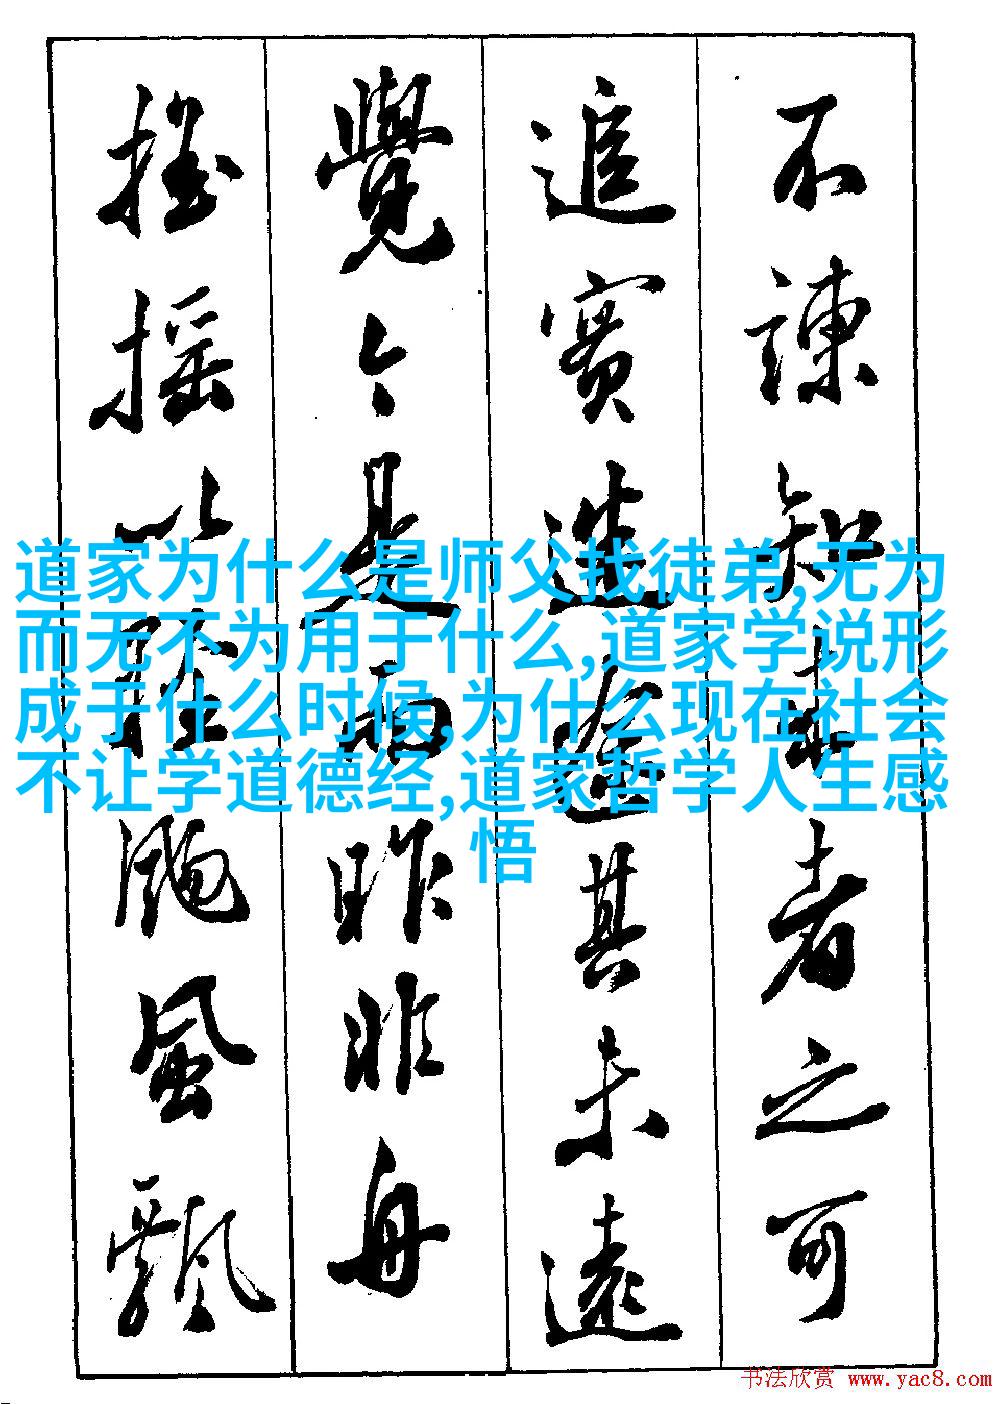 不諫知来者之可
追實迷途其未遠
覺今是而昨非舟
搖摇以輕颺風飄
道家为什么是师父找徒弟,无为
而无不为用于什么,道家学说形
成于什么时候,为什么现在社会
不让学道德经,道家哲学人生感
悟
书法欣赏 www.yac8.com